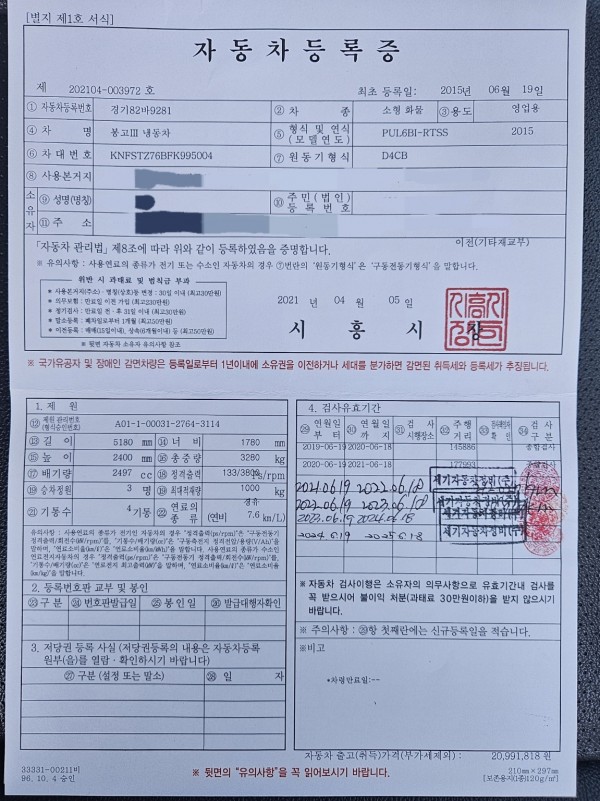 [별지 제1호 서식]
자동차등록증
제 202104-003972 호 최초 등록일: 2015년 06월 19일
① 자동차등록번호 경기82바9281 ② 차 종 소형 화물 ③용도 영업용
④ 차 명 봉고III 냉동차 ⑤ 형식 및 연식 (모델연도) PUL6BI-RTSS 2015
⑥ 차대번호 KNFSTZ76BFK995004 ⑦ 원동기형식 D4CB
⑧ 사용본거지
소유자 ⑨ 성명(명칭) ⑩ 주민(법인)등록번호
⑪ 주 소
「자동차 관리법」 제8조에 따라 위와 같이 등록하였음을 증명합니다. 이전(기타재교부)
※ 유의사항 : 사용연료의 종류가 전기 또는 수소인 자동차의 경우 ⑦번란의 '원동기형식'은 '구동전동기형식'을 말합니다.
위반 시 과태료 및 범칙금 부과
※ 사용본거지(주소)·명칭(상호)등 변경 : 30일 이내 (최고30만원)
※ 의무보험 : 만료일 이전 가입 (최고230만원)
※ 정기검사 : 만료일 전·후 31일 이내 (최고30만원)
※ 말소등록 : 폐차일로부터 1개월 (최고50만원)
※ 이전등록 : 매매(15일이내), 상속(6개월이내) 등 (최고50만원)
※ 뒷면 자동차 소유자 유의사항 참조
2021 년 04 월 05 일
시 흥 시 장
※ 국가유공자 및 장애인 감면차량은 등록일로부터 1년이내에 소유권을 이전하거나 세대를 분가하면 감면된 취득세와 등록세가 추징됩니다.
1. 제 원
⑫ 제원 관리번호 (형식승인번호) A01-1-00031-2764-3114
⑬ 길 이 5180 mm ⑭ 너 비 1780 mm
⑮ 높 이 2400 mm ⑯ 총중량 3280 kg
⑰ 배기량 2497 cc ⑱ 정격출력 133/3800 Ps/rpm
⑲ 승차정원 3 명 ⑳ 최대적재량 1000 kg
㉑ 기통수 4기통 ㉒ 연료의 종류 경유 (연비) 7.6 km/L)
2. 등록번호판 교부 및 봉인
㉓구 분 ㉔번호판발급일 ㉕봉 인 일 ㉖발급대행자확인
3. 저당권 등록 사실 (저당권등록의 내용은 자동차등록
원부(을)를 열람·확인하시기 바랍니다)
㉗ 구분 (설정 또는 말소) ㉘ 일 자
33331-00211비
96. 10. 4 승인
4. 검사유효기간
㉙ 연월일부터 ㉚ 연월일까지 ㉛ 검사시행장소 ㉜ 주행거리 ㉞ 검사구분
2019-06-19 2020-06-18 145886 종합검사
2020-06-19 2021-06-18 177993
2021.06.19 2022.06.18
2022.06.19 2023.06.18
2023.06.19 2024.06.18
2024 6.19 2025 6.18
※ 자동차 검사이행은 소유자의 의무사항으로 유효기간내 검사를
꼭 받으시어 불이익 처분(과태료 30만원이하)을 받지 않으시기
바랍니다.
※ 주의사항 : ㉙항 첫째란에는 신규등록일을 적습니다.
※비고
*차령만료일:--
자동차 출고(취득)가격(부가세제외) : 20,991,818 원
210mm×297mm
[보존용지(1종)120g/㎡]
※ 뒷면의 "유의사항"을 꼭 읽어보시기 바랍니다.